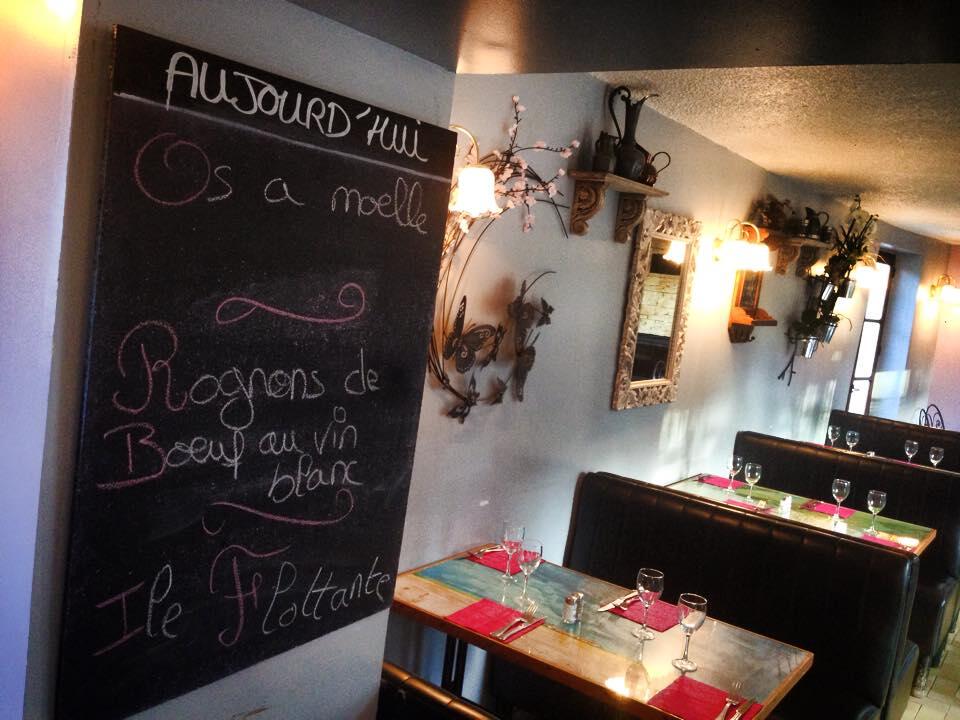 AUJOURD'HUI
Os a moelle
Rognons de
Boeuf au vin
blanc
Ile Flottante